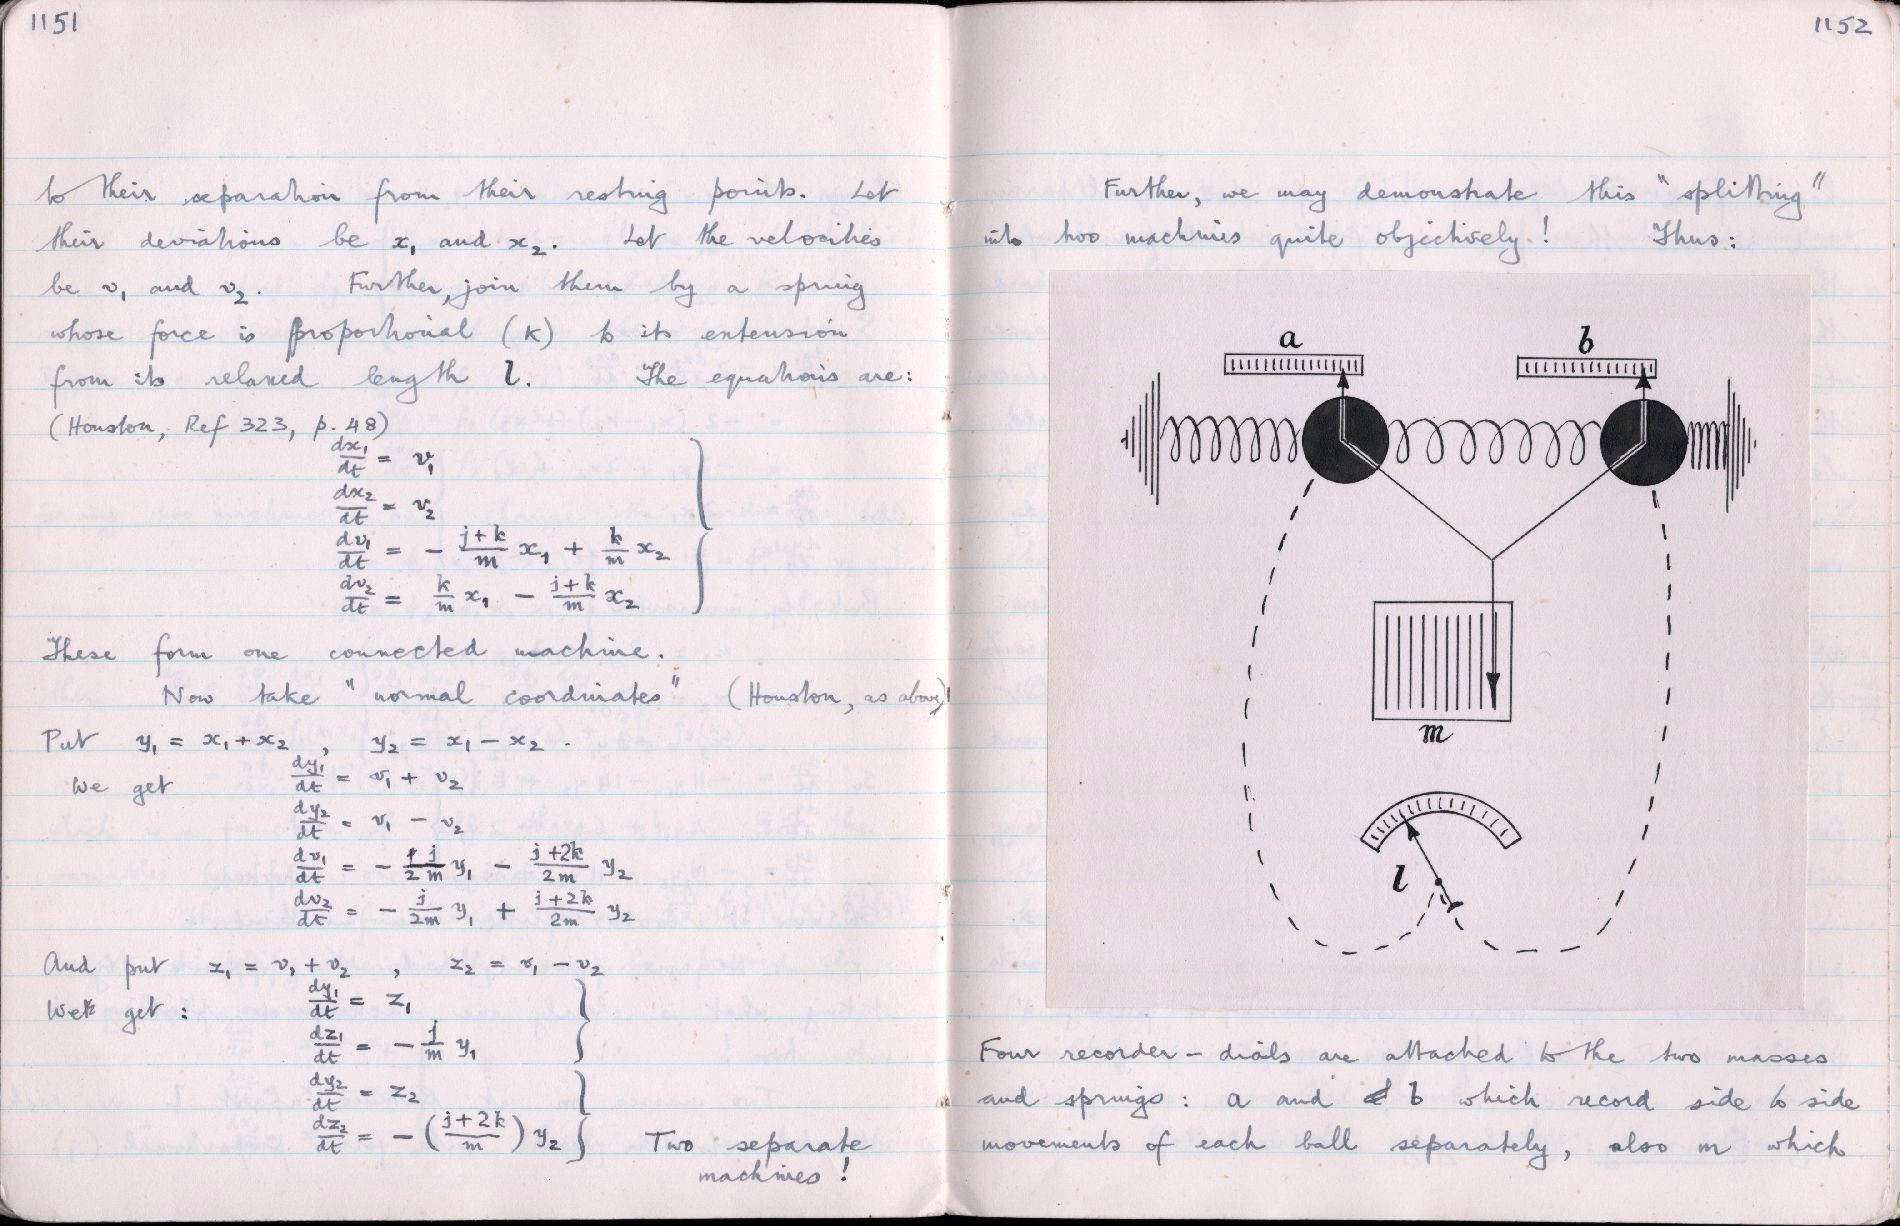 1151
to their separation from their resting points. Let
their deviations be x₁ and x₂. Let the velocities
be v₁ and v₂. Further, join them by a spring
whose force is proportional (k) to its extension
from its relaxed length l. The equations are:
(Houston, Ref 323, p. 48)
dx₁/dt = v₁
dx₂/dt = v₂
dv₁/dt = - (j+k)/m x₁ + k/m x₂
dv₂/dt = k/m x₁ - (j+k)/m x₂
These form one connected machine.
Now take "normal coordinates" (Houston, as above)
Put y₁ = x₁+x₂ , y₂ = x₁ - x₂ .
We get dy₁/dt = v₁ + v₂
dy₂/dt = v₁ - v₂
dv₁/dt = - j/2m y₁ - (j+2k)/2m y₂
dv₂/dt = - j/2m y₁ + (j+2k)/2m y₂
And put z₁ = v₁ + v₂ , z₂ = v₁ - v₂
We get : dy₁/dt = z₁
dz₁/dt = - j/m y₁
dy₂/dt = z₂
dz₂/dt = - ((j+2k)/m) y₂ Two separate
machines !
1152
Further, we may demonstrate this "splitting"
into two machines quite objectively! Thus:
a b
m
l
Four recorder-dials are attached to the two masses
and springs : a and b which record side to side
movements of each ball separately, also m which